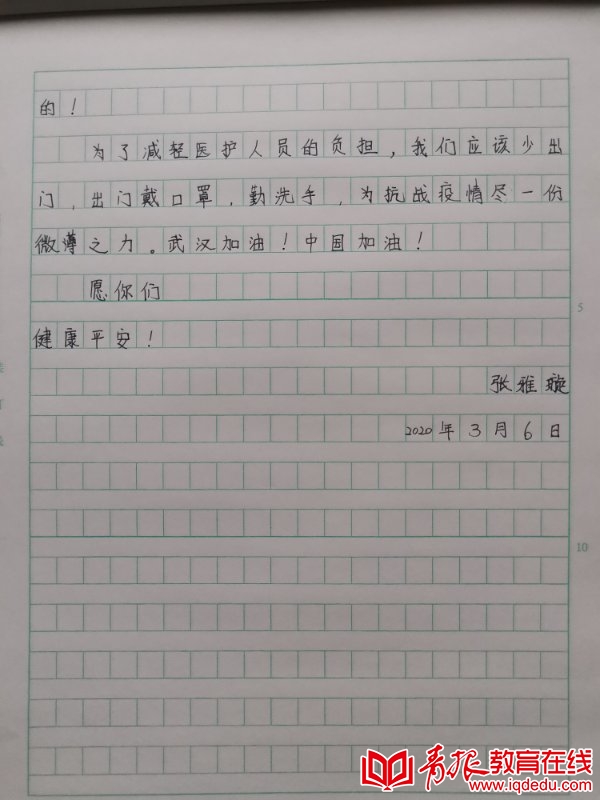 的！
为了减轻医护人员的负担，我们应该少出
门，出门戴口罩，勤洗手，为抗战疫情尽一份
微薄之力。武汉加油！中国加油！
愿你们
5
健康平安！
张雅璇
2020年3月6日
10
青报教育在线
www.iqdedu.com